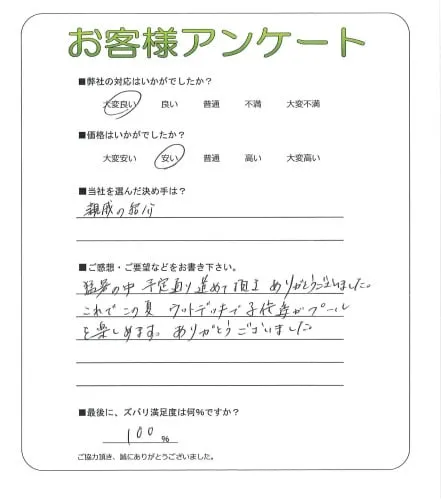 お客様アンケート
■弊社の対応はいかがでしたか？
大変良い 良い 普通 不満 大変不満
■価格はいかがでしたか？
大変安い 安い 普通 高い 大変高い
■当社を選んだ決め手は？
親戚の紹介
■ご感想・ご要望などをお書き下さい。
猛暑の中 予定通り進めて頂き ありがとうございました。
これでこの夏 ウットデッキで子供達がプール
を楽しめます。 ありがとうございました
■最後に、ズバリ満足度は何%ですか？
100 %
ご協力頂き、誠にありがとうございました。